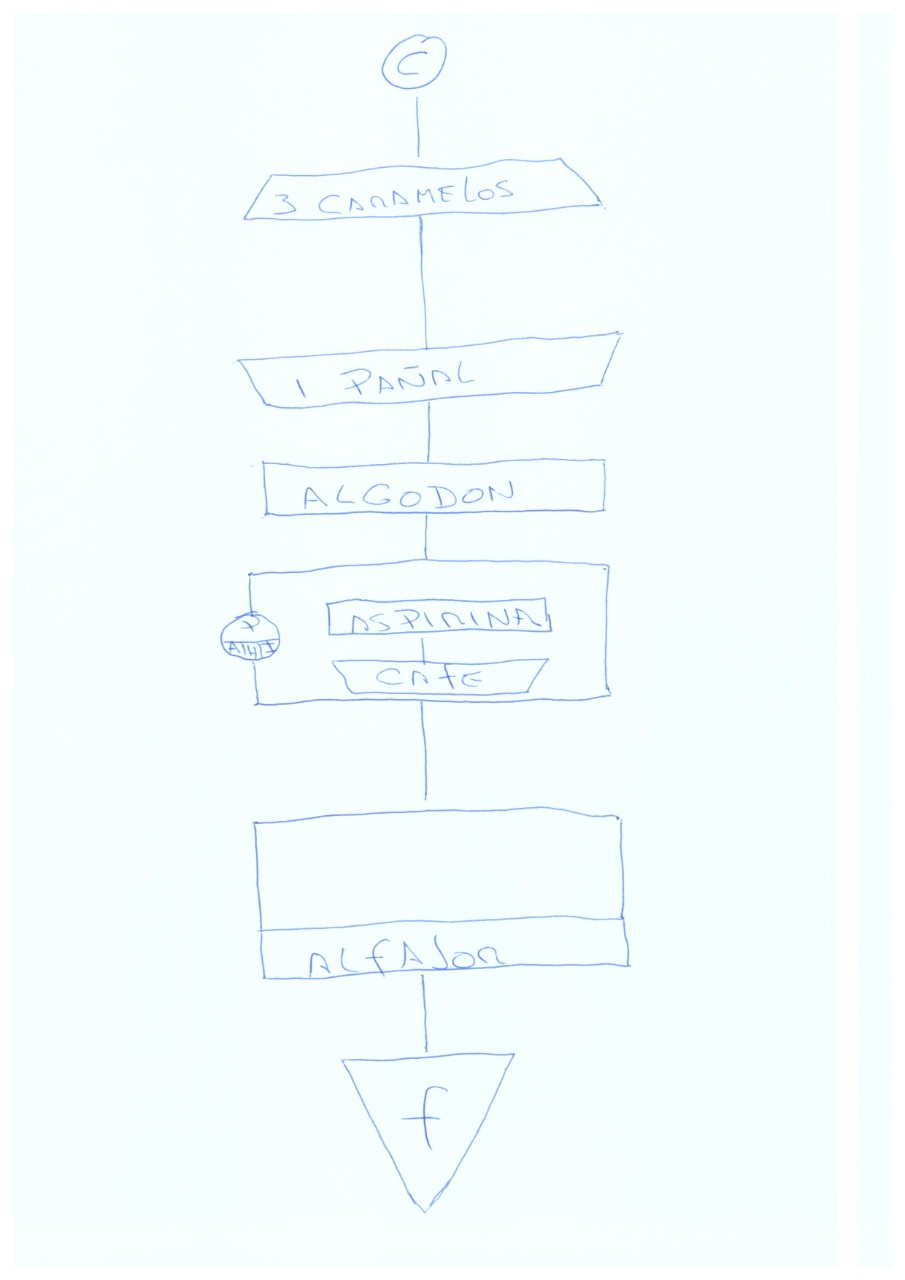 C
3 CARAMELOS
1 PAÑAL
ALGODON
ASPIRINA
P
CAFE
ALFAJOR
f